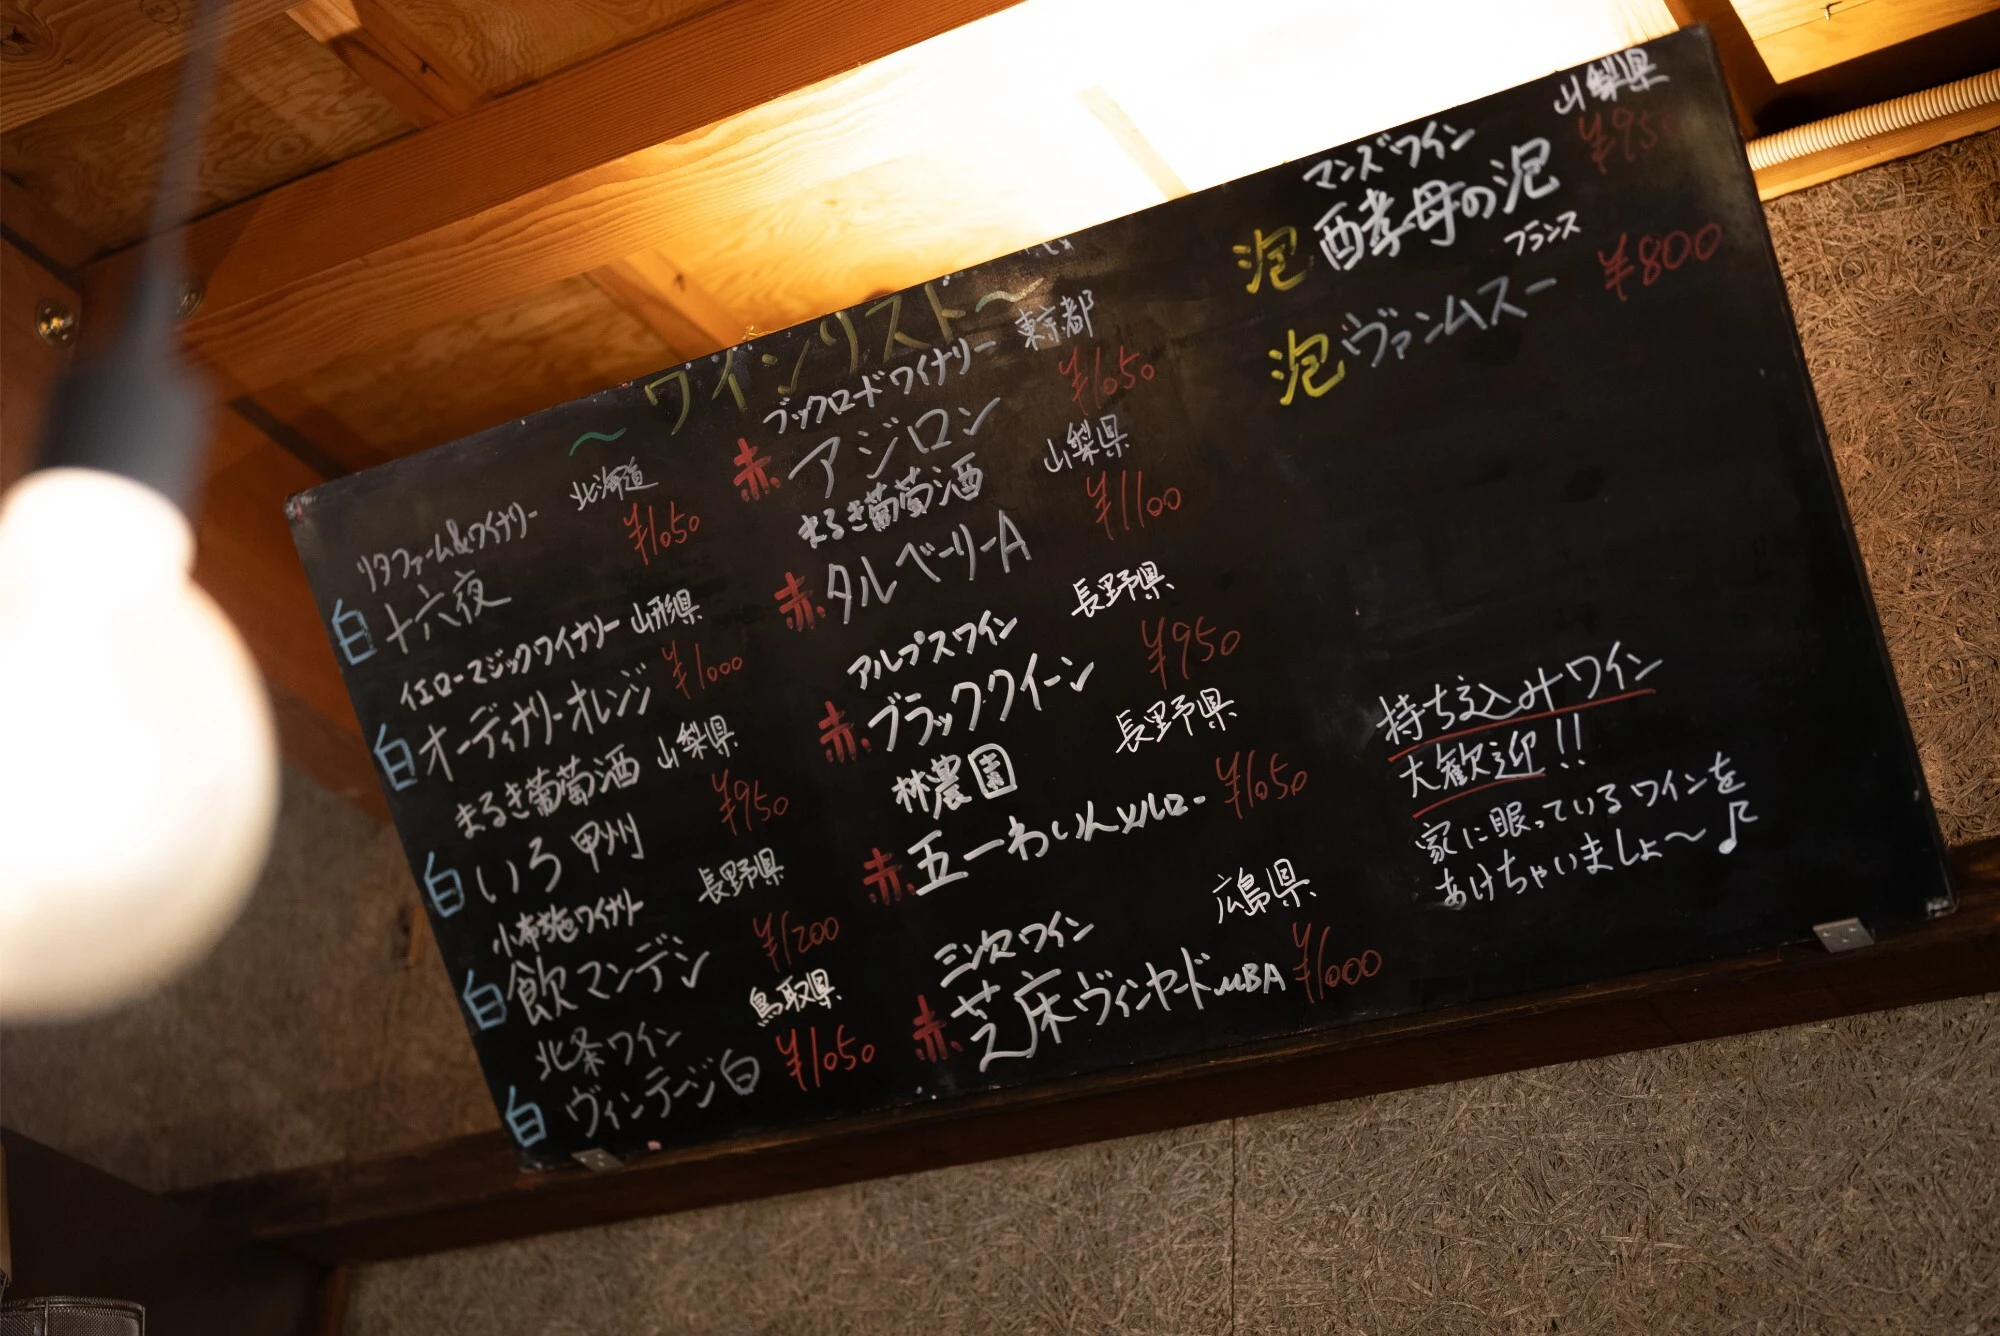 〜ワインリスト〜
リタファーム&ワイナリー 北海道
白 十六夜 ¥1050
イエローマジックワイナリー 山形県
白 オーディナリーオレンジ ¥1000
まるき葡萄酒 山梨県
白 いろ 甲州 ¥950
小布施ワイナリー 長野県
白 飲マンデシ ¥1200
北条ワイン 鳥取県
白 ヴィンテージ白 ¥1050
ブックロードワイナリー 東京都
赤 アジロン ¥1050
まるき葡萄酒 山梨県
赤 タルベーリーA ¥1100
アルプスワイン 長野県
赤 ブラッククイーン ¥950
林農園 長野県
赤 五一わいんメルロー ¥1050
三次ワイン 広島県
赤 芝床ヴィンヤードMBA ¥1000
マンズワイン 山梨県
泡 酵母の泡 ¥950
フランス
泡 ヴァンムスー ¥800
持ち込みワイン
大歓迎!!
家に眠っているワインを
あけちゃいましょ〜♪